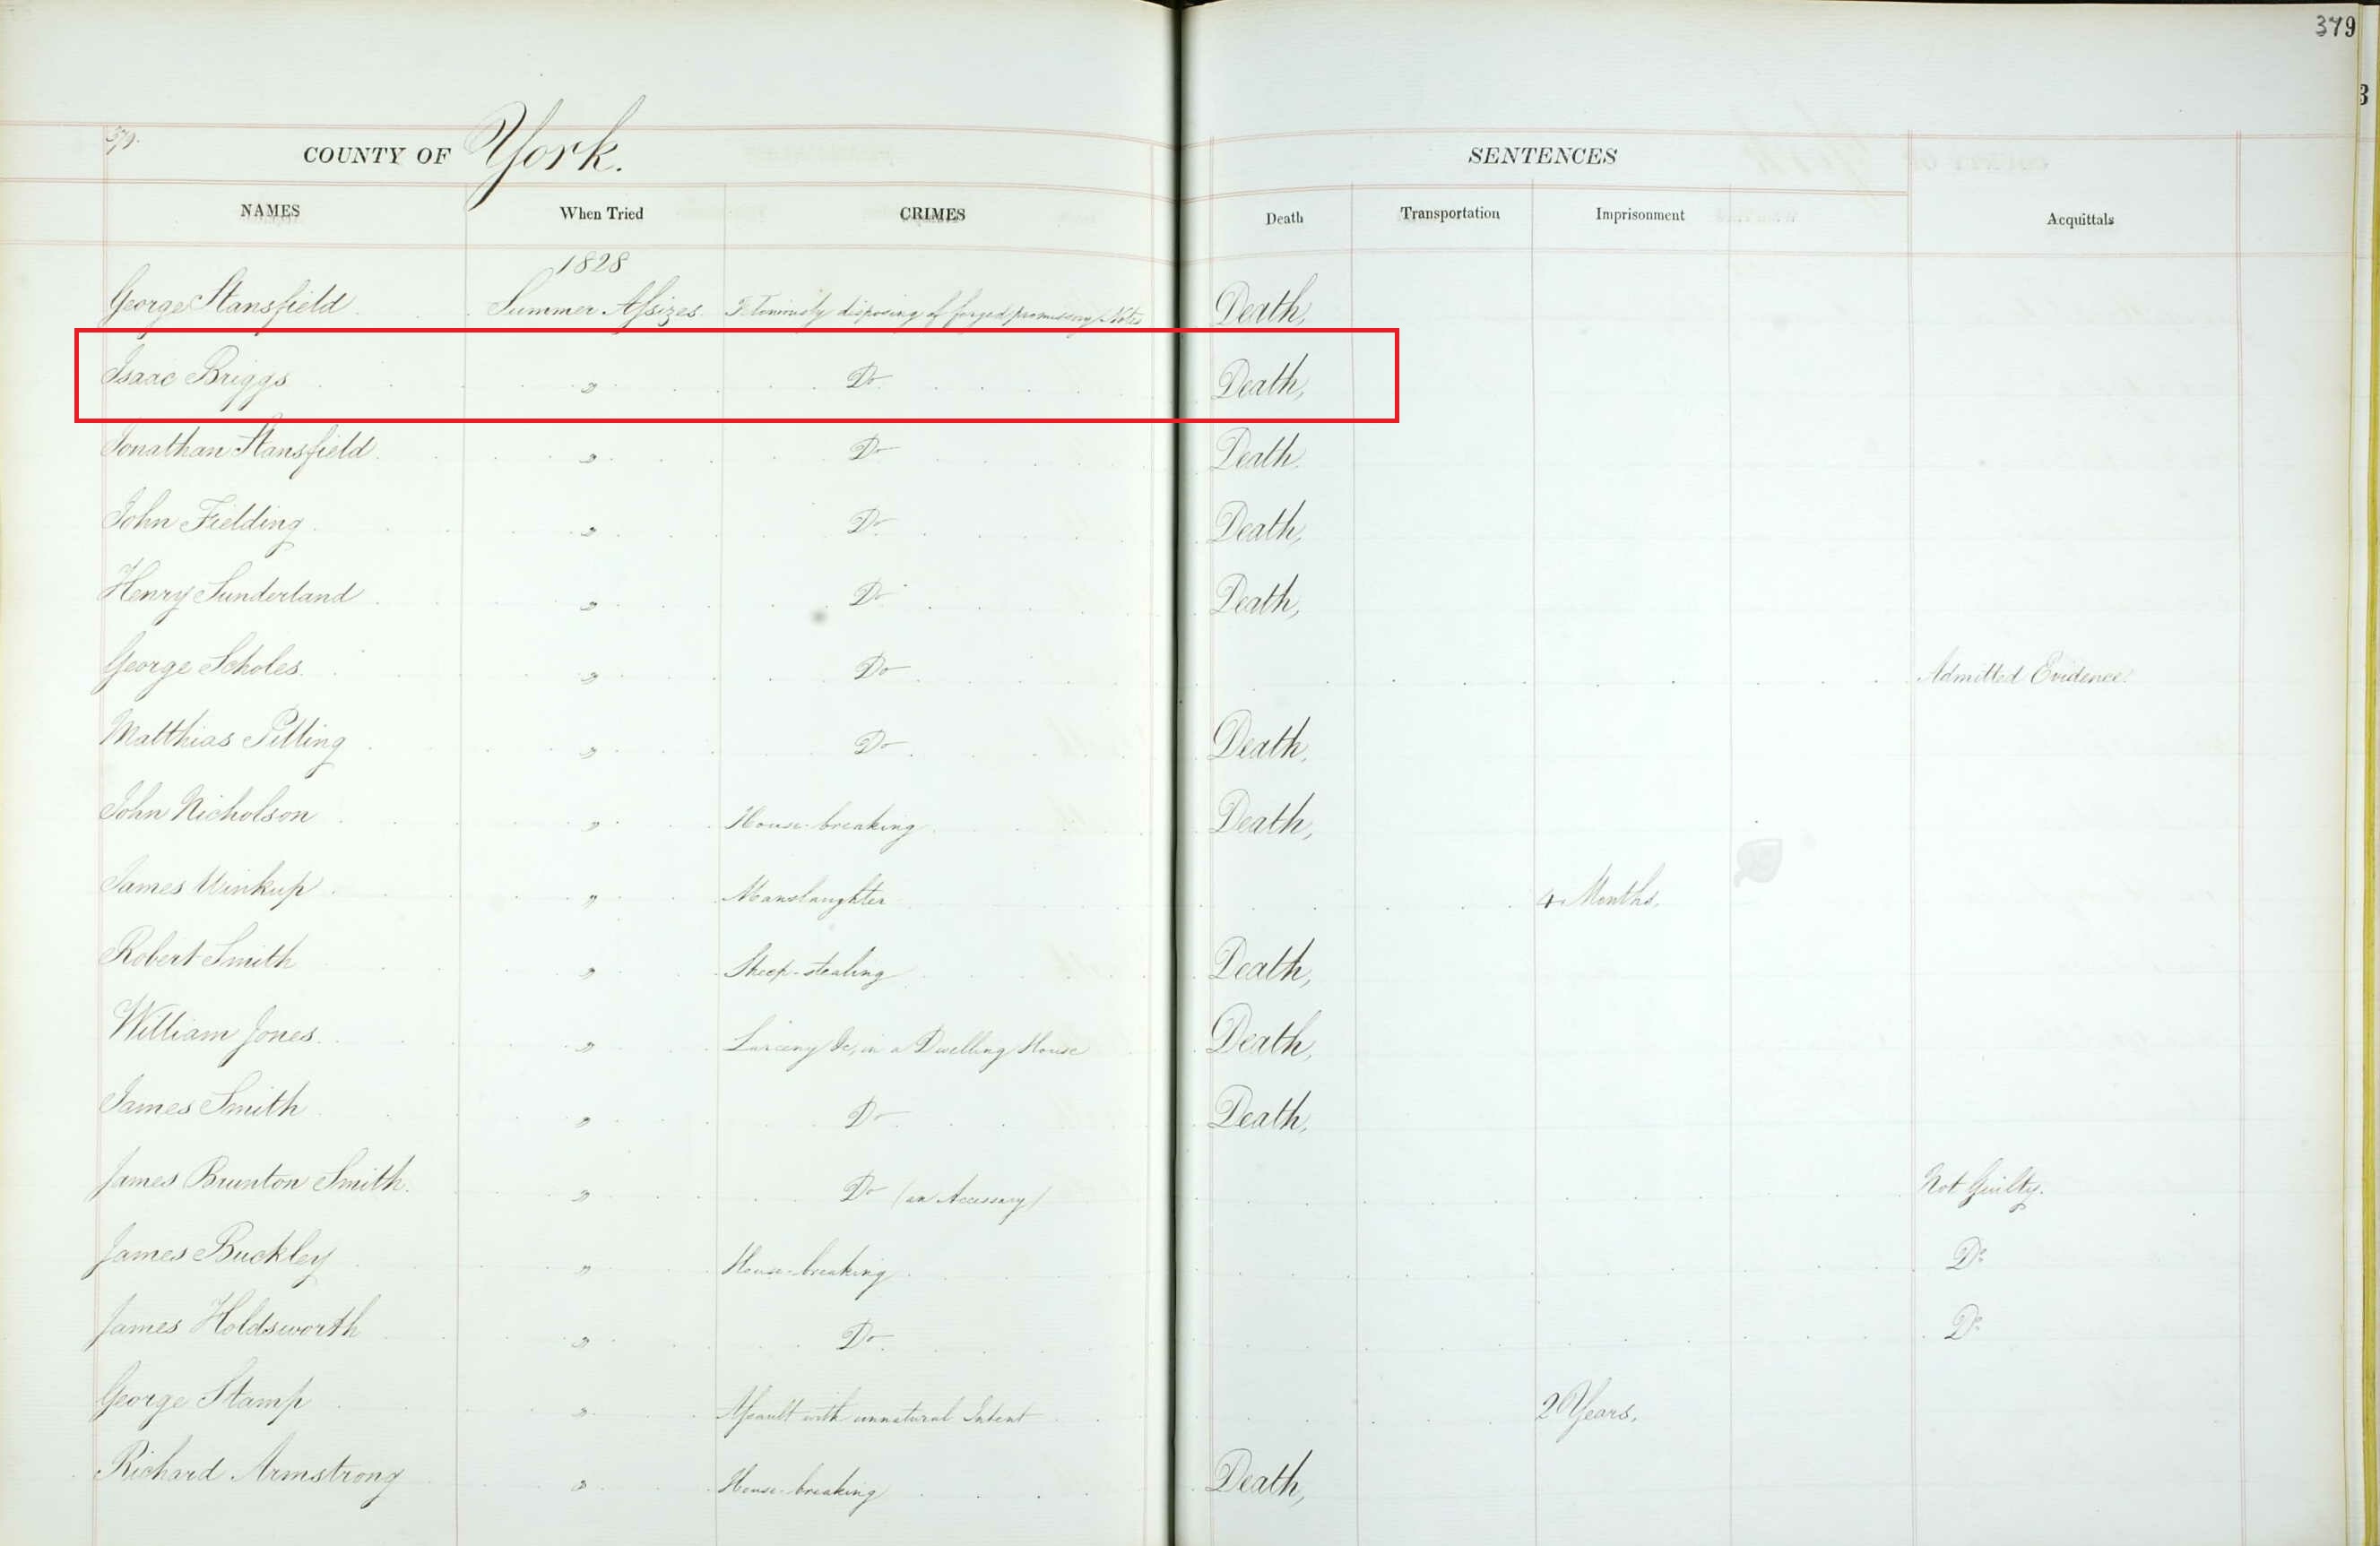 379
3
379.
COUNTY OF York.
SENTENCES
NAMES When Tried CRIMES Death Transportation Imprisonment Acquittals
1828
George Stansfield Summer Assizes Feloniously disposing of forged promissory Notes Death,
Isaac Briggs " Do Death,
Jonathan Stansfield " Do Death
John Fielding " Do Death,
Henry Sunderland " Do Death,
George Scholes " Do Admitted Evidence.
Matthias Pilling " Do Death,
John Nicholson " House-breaking Death,
James Winkup " Manslaughter 4 Months,
Robert Smith " Sheep-stealing Death,
William Jones " Larceny &c, in a Dwelling House Death,
James Smith " Do Death,
James Brunton Smith. " Do (an Accessory) Not Guilty.
James Buckley " House-breaking Do
James Holdsworth " Do Do
George Stamp " Assault with unnatural Intent 2 Years,
Richard Armstrong " House-breaking Death,